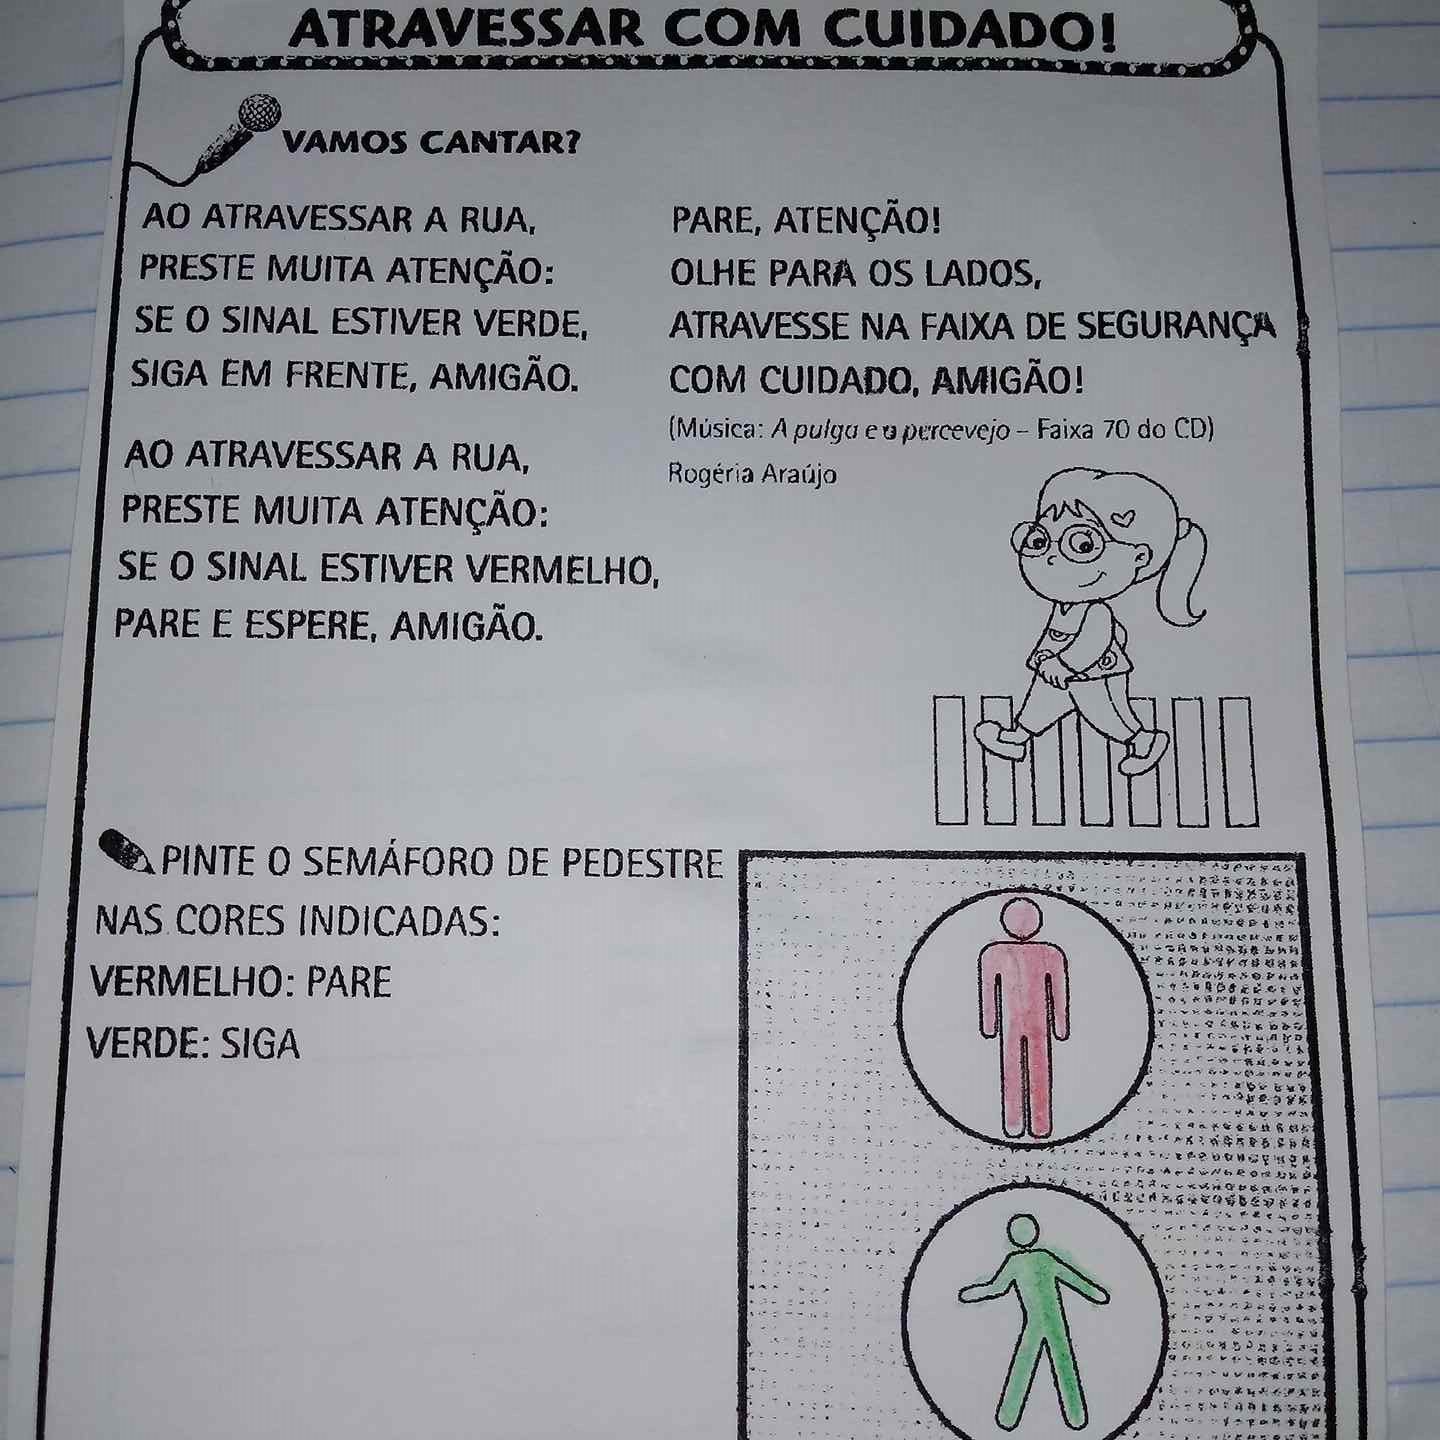 ATRAVESSAR COM CUIDADO!
VAMOS CANTAR?
AO ATRAVESSAR A RUA,
PRESTE MUITA ATENÇÃO:
SE O SINAL ESTIVER VERDE,
SIGA EM FRENTE, AMIGÃO.
AO ATRAVESSAR A RUA,
PRESTE MUITA ATENÇÃO:
SE O SINAL ESTIVER VERMELHO,
PARE E ESPERE, AMIGÃO.
PARE, ATENÇÃO!
OLHE PARA OS LADOS,
ATRAVESSE NA FAIXA DE SEGURANÇA
COM CUIDADO, AMIGÃO!
(Música: A pulga e o percevejo – Faixa 70 do CD)
Rogéria Araújo
PINTE O SEMÁFORO DE PEDESTRE
NAS CORES INDICADAS:
VERMELHO: PARE
VERDE: SIGA